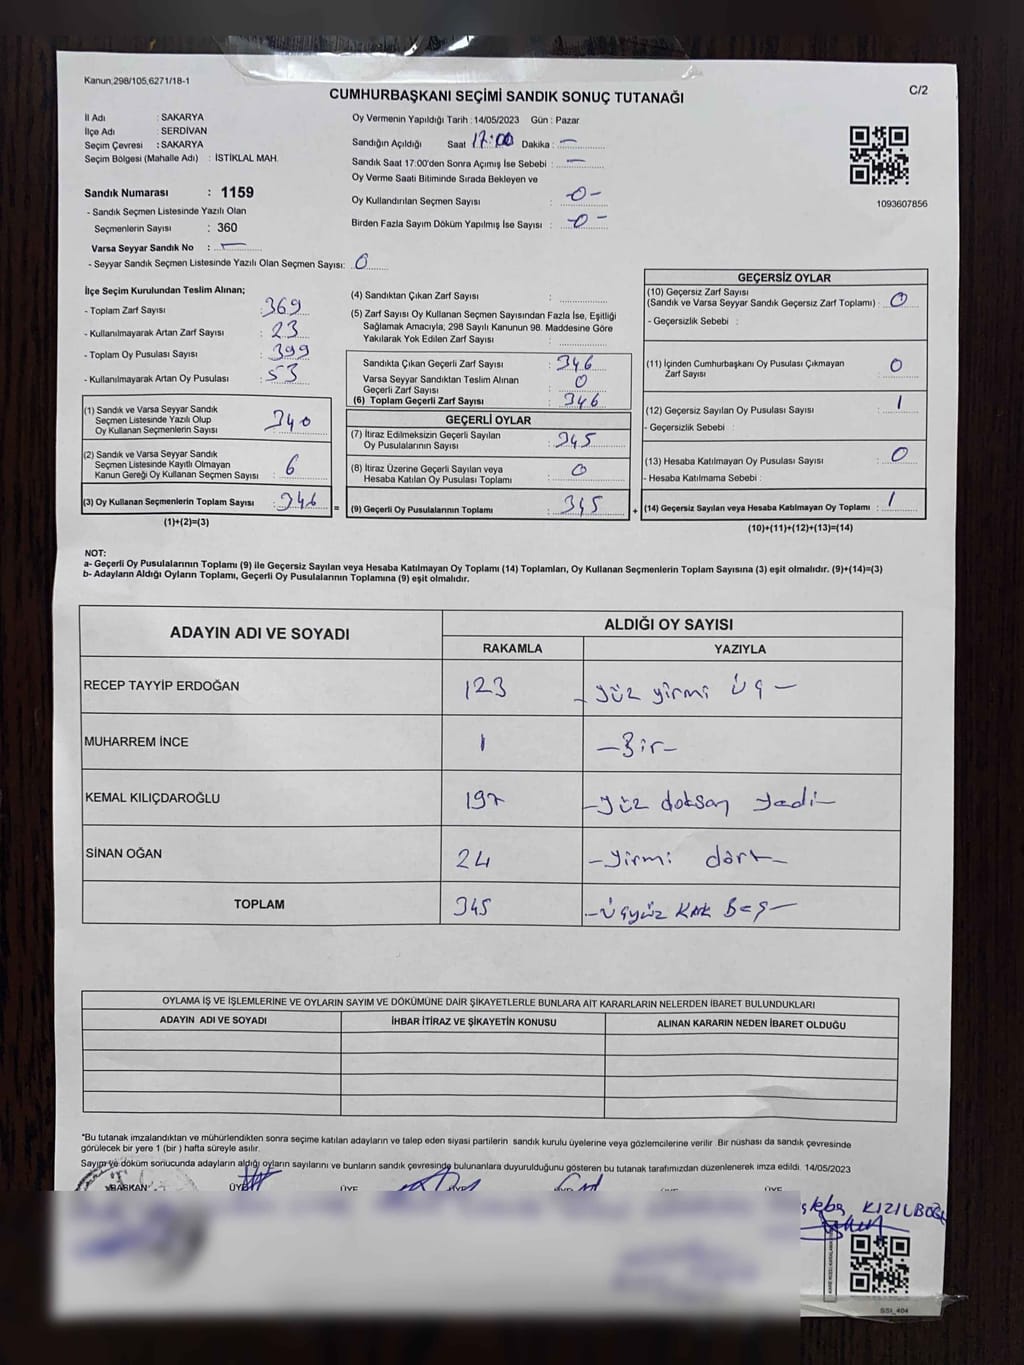 Kanun;298/105,6271/18-1
C/2
CUMHURBAŞKANI SEÇİMİ SANDIK SONUÇ TUTANAĞI
İl Adı : SAKARYA
İlçe Adı : SERDİVAN
Seçim Çevresi : SAKARYA
Seçim Bölgesi (Mahalle Adı) : İSTİKLAL MAH.
Sandık Numarası : 1159
- Sandık Seçmen Listesinde Yazılı Olan
Seçmenlerin Sayısı : 360
Varsa Seyyar Sandık No : —
- Seyyar Sandık Seçmen Listesinde Yazılı Olan Seçmen Sayısı: 0
Oy Vermenin Yapıldığı Tarih : 14/05/2023 Gün : Pazar
Sandığın Açıldığı Saat 17:00 Dakika : —
Sandık Saat 17:00'den Sonra Açımış İse Sebebi : —
Oy Verme Saati Bitiminde Sırada Bekleyen ve
Oy Kullandırılan Seçmen Sayısı : 0-
Birden Fazla Sayım Döküm Yapılmış İse Sayısı : -0-
1093607856
İlçe Seçim Kurulundan Teslim Alınan;
- Toplam Zarf Sayısı : 369
- Kullanılmayarak Artan Zarf Sayısı : 23
- Toplam Oy Pusulası Sayısı : 399
- Kullanılmayarak Artan Oy Pusulası : 53
(1) Sandık ve Varsa Seyyar Sandık
Seçmen Listesinde Yazılı Olup
Oy Kullanan Seçmenlerin Sayısı : 340
(2) Sandık ve Varsa Seyyar Sandık
Seçmen Listesinde Kayıtlı Olmayan
Kanun Gereği Oy Kullanan Seçmen Sayısı : 6
(3) Oy Kullanan Seçmenlerin Toplam Sayısı : 346 =
(1)+(2)=(3)
(4) Sandıktan Çıkan Zarf Sayısı :
(5) Zarf Sayısı Oy Kullanan Seçmen Sayısından Fazla İse, Eşitliği
Sağlamak Amacıyla; 298 Sayılı Kanunun 98. Maddesine Göre
Yakılarak Yok Edilen Zarf Sayısı :
Sandıkta Çıkan Geçerli Zarf Sayısı : 346
Varsa Seyyar Sandıktan Teslim Alınan
Geçerli Zarf Sayısı : 0
(6) Toplam Geçerli Zarf Sayısı : 346
GEÇERLİ OYLAR
(7) İtiraz Edilmeksizin Geçerli Sayılan
Oy Pusulalarının Sayısı : 345
(8) İtiraz Üzerine Geçerli Sayılan veya
Hesaba Katılan Oy Pusulası Toplamı : 0
(9) Geçerli Oy Pusulalarının Toplamı : 345 +
GEÇERSİZ OYLAR
(10) Geçersiz Zarf Sayısı
(Sandık ve Varsa Seyyar Sandık Geçersiz Zarf Toplamı) : 0
- Geçersizlik Sebebi :
(11) İçinden Cumhurbaşkanı Oy Pusulası Çıkmayan
Zarf Sayısı : 0
(12) Geçersiz Sayılan Oy Pusulası Sayısı : 1
- Geçersizlik Sebebi :
(13) Hesaba Katılmayan Oy Pusulası Sayısı : 0
- Hesaba Katılmama Sebebi :
(14) Geçersiz Sayılan veya Hesaba Katılmayan Oy Toplamı : 1
(10)+(11)+(12)+(13)=(14)
NOT:
a- Geçerli Oy Pusulalarının Toplamı (9) ile Geçersiz Sayılan veya Hesaba Katılmayan Oy Toplamı (14) Toplamları, Oy Kullanan Seçmenlerin Toplam Sayısına (3) eşit olmalıdır. (9)+(14)=(3)
b- Adayların Aldığı Oyların Toplamı, Geçerli Oy Pusulalarının Toplamına (9) eşit olmalıdır.
ADAYIN ADI VE SOYADI
ALDIĞI OY SAYISI
RAKAMLA YAZIYLA
RECEP TAYYİP ERDOĞAN 123 - yüz yirmi üç -
MUHARREM İNCE 1 - Bir -
KEMAL KILIÇDAROĞLU 197 - yüz doksan yedi -
SİNAN OĞAN 24 - yirmi dört -
TOPLAM 345 - üçyüz kırk Beş -
OYLAMA İŞ VE İŞLEMLERİNE VE OYLARIN SAYIM VE DÖKÜMÜNE DAİR ŞİKAYETLERLE BUNLARA AİT KARARLARIN NELERDEN İBARET BULUNDUKLARI
ADAYIN ADI VE SOYADI İHBAR İTİRAZ VE ŞİKAYETİN KONUSU ALINAN KARARIN NEDEN İBARET OLDUĞU
*Bu tutanak imzalandıktan ve mühürlendikten sonra seçime katılan adayların ve talep eden siyasi partilerin sandık kurulu üyelerine veya gözlemcilerine verilir. Bir nüshası da sandık çevresinde
görülecek bir yere 1 (bir ) hafta süreyle asılır.
Sayım ve döküm sonucunda adayların aldığı oyların sayılarını ve bunların sandık çevresinde bulunanlara duyurulduğunu gösteren bu tutanak tarafımızdan düzenlenerek imza edildi. 14/05/2023
BAŞKAN ÜYE ÜYE ÜYE ÜYE ÜYE
SSİ_404